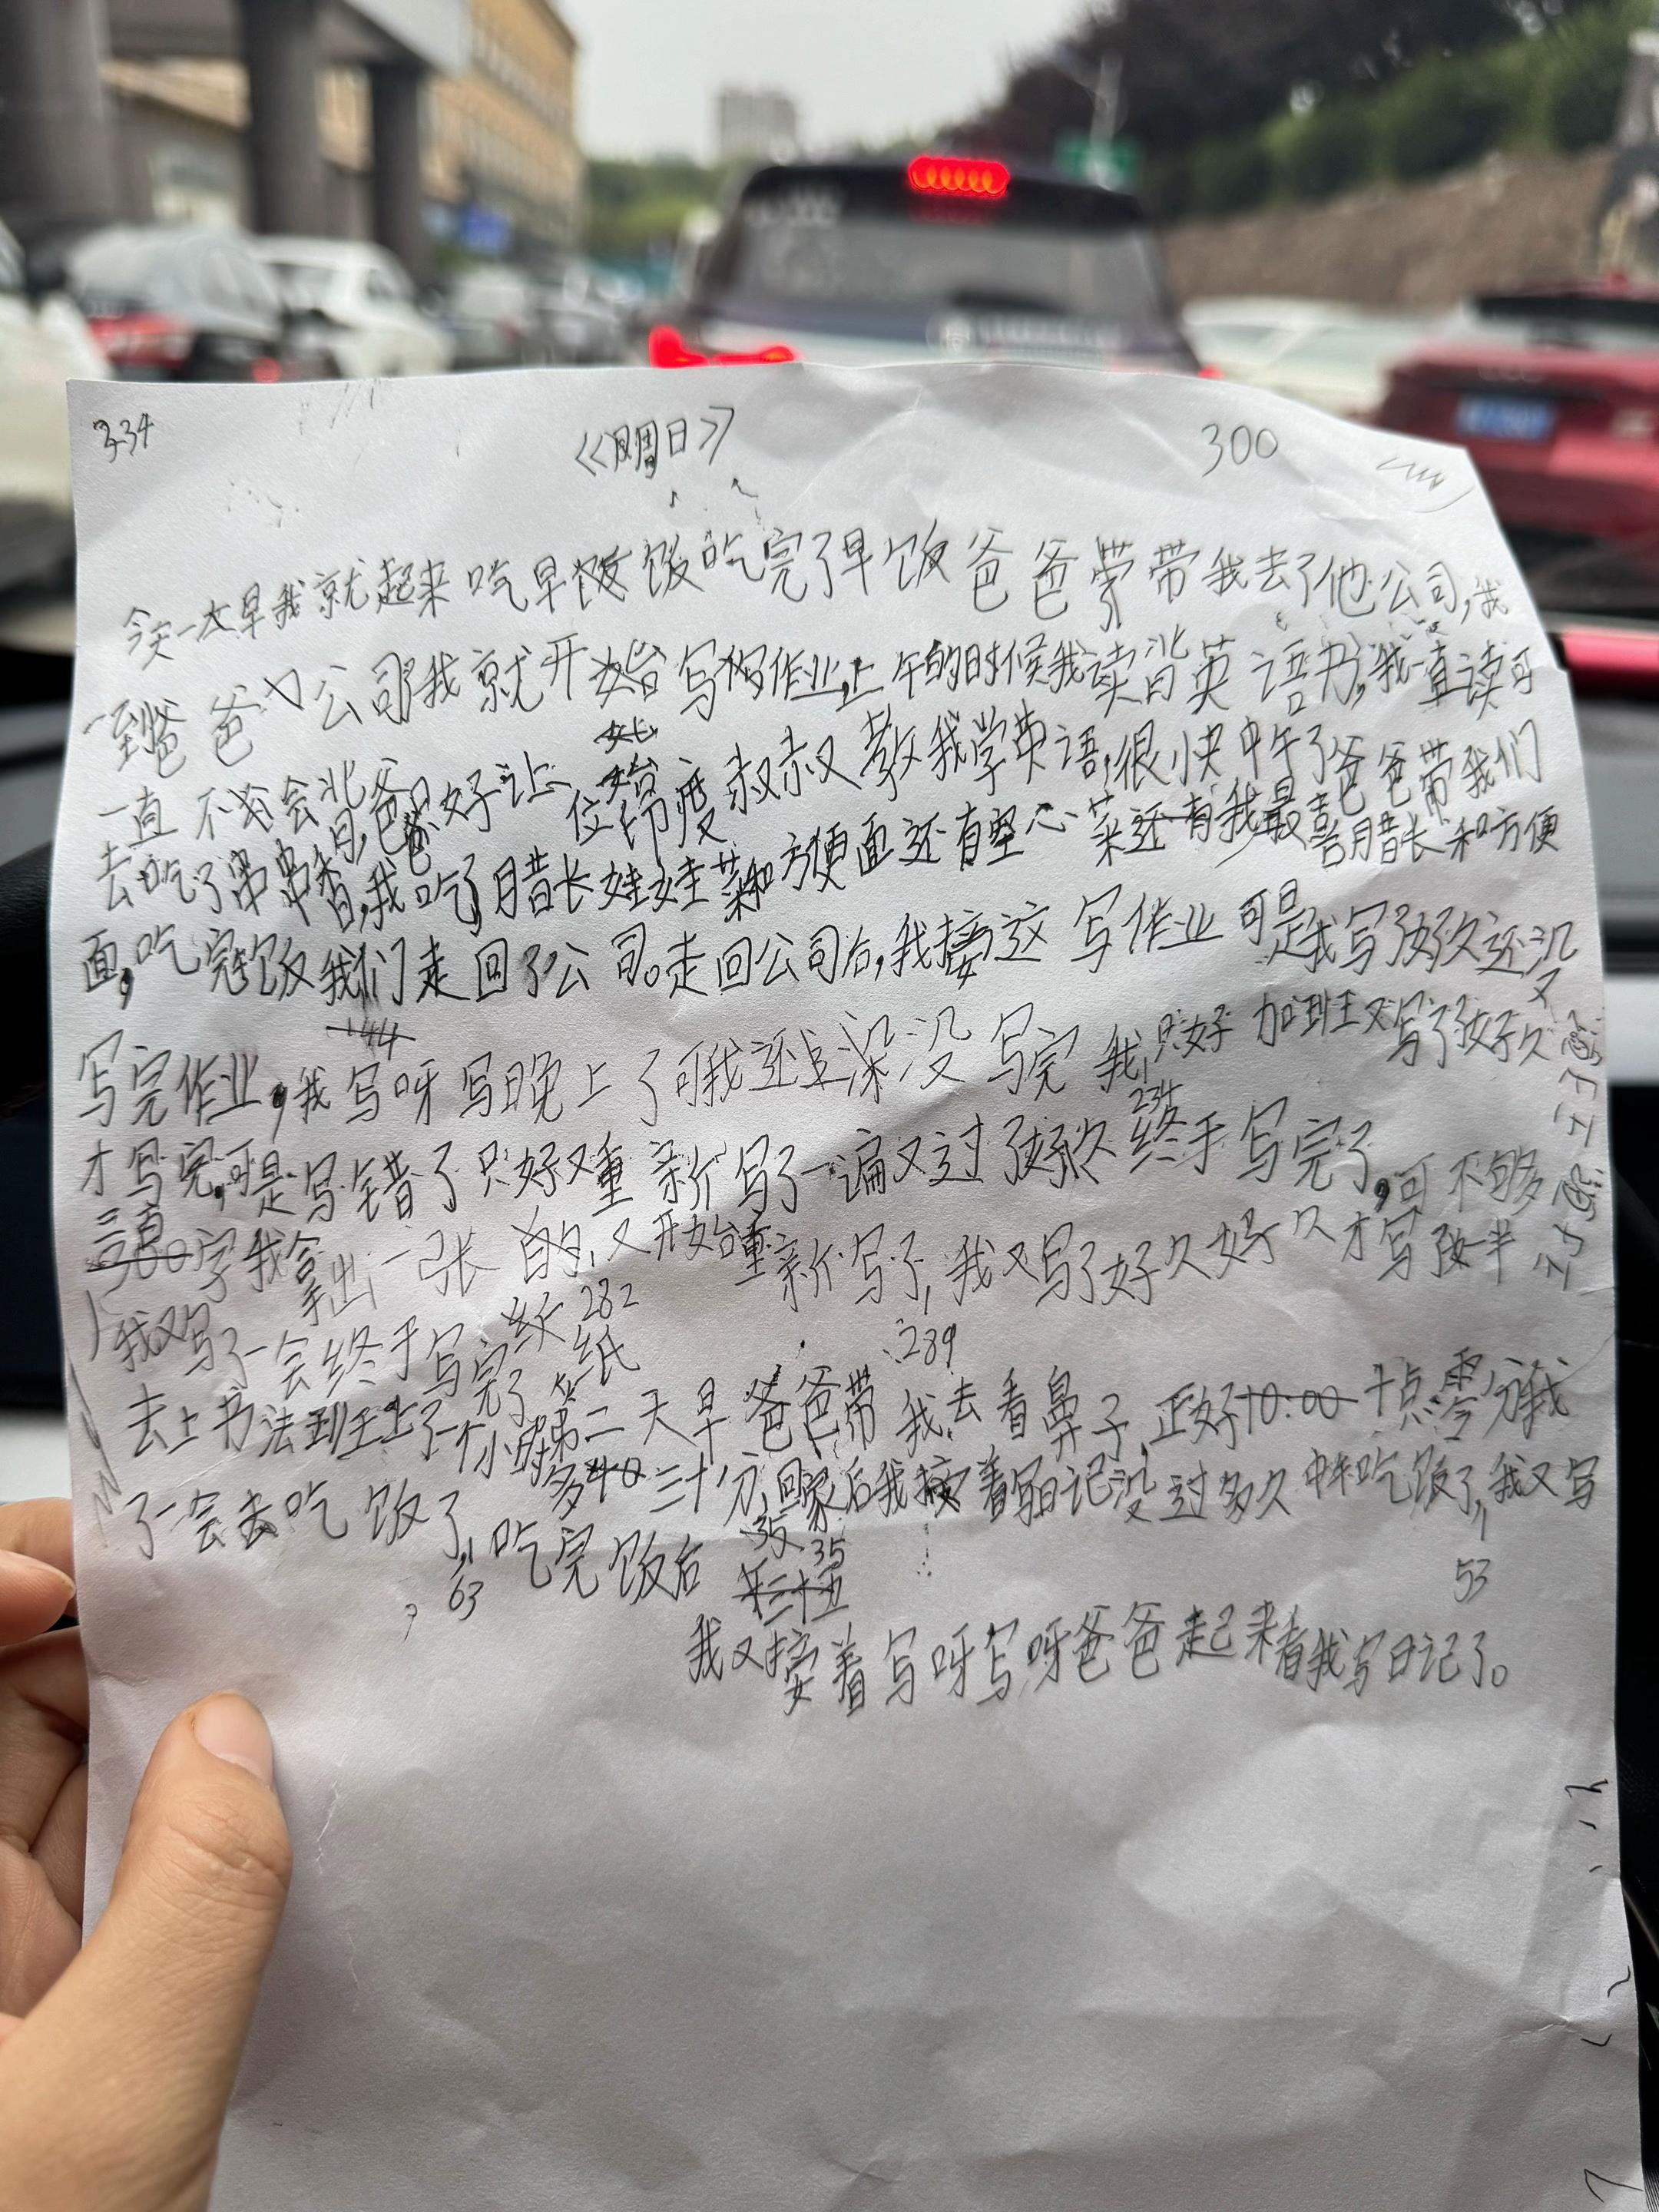 334
300
今天一大早我就起来吃早饭吃完了早饭爸爸带我去了他公司,我
一到爸爸公司我就开始写作业,上午的时候我读背英语书,我一直读可
一直不会背,爸爸只好让一位印度叔叔教我学英语,很快中午了爸爸带我们
去吃了串串香,我吃了腊长娃娃菜和方便面还有空心菜还有我最喜腊长和方便
面,吃完饭我们走回了公司。走回公司后,我接这写作业可是我写了好久还没
144
写完作业,我写呀写晚上了可我还是没写完我只好加班又写了好久
234
才写完,可是写错了只好又重新写了一遍又过了好久终于写完了,可不够
三百字我拿出一张白纸,又开始重新写了,我又写了好久好久才写了一半
282
我又写了一会终于写完了
289
第二天早爸爸带我去看鼻子,正好十点零分我
去上书法班上了一个小时多三十分,回家后我接着写日记没过多久中午吃饭了,我又写
了一会去吃饭了,吃完饭后
35
53
63
我又接着写呀写呀爸爸起来看我写日记了。